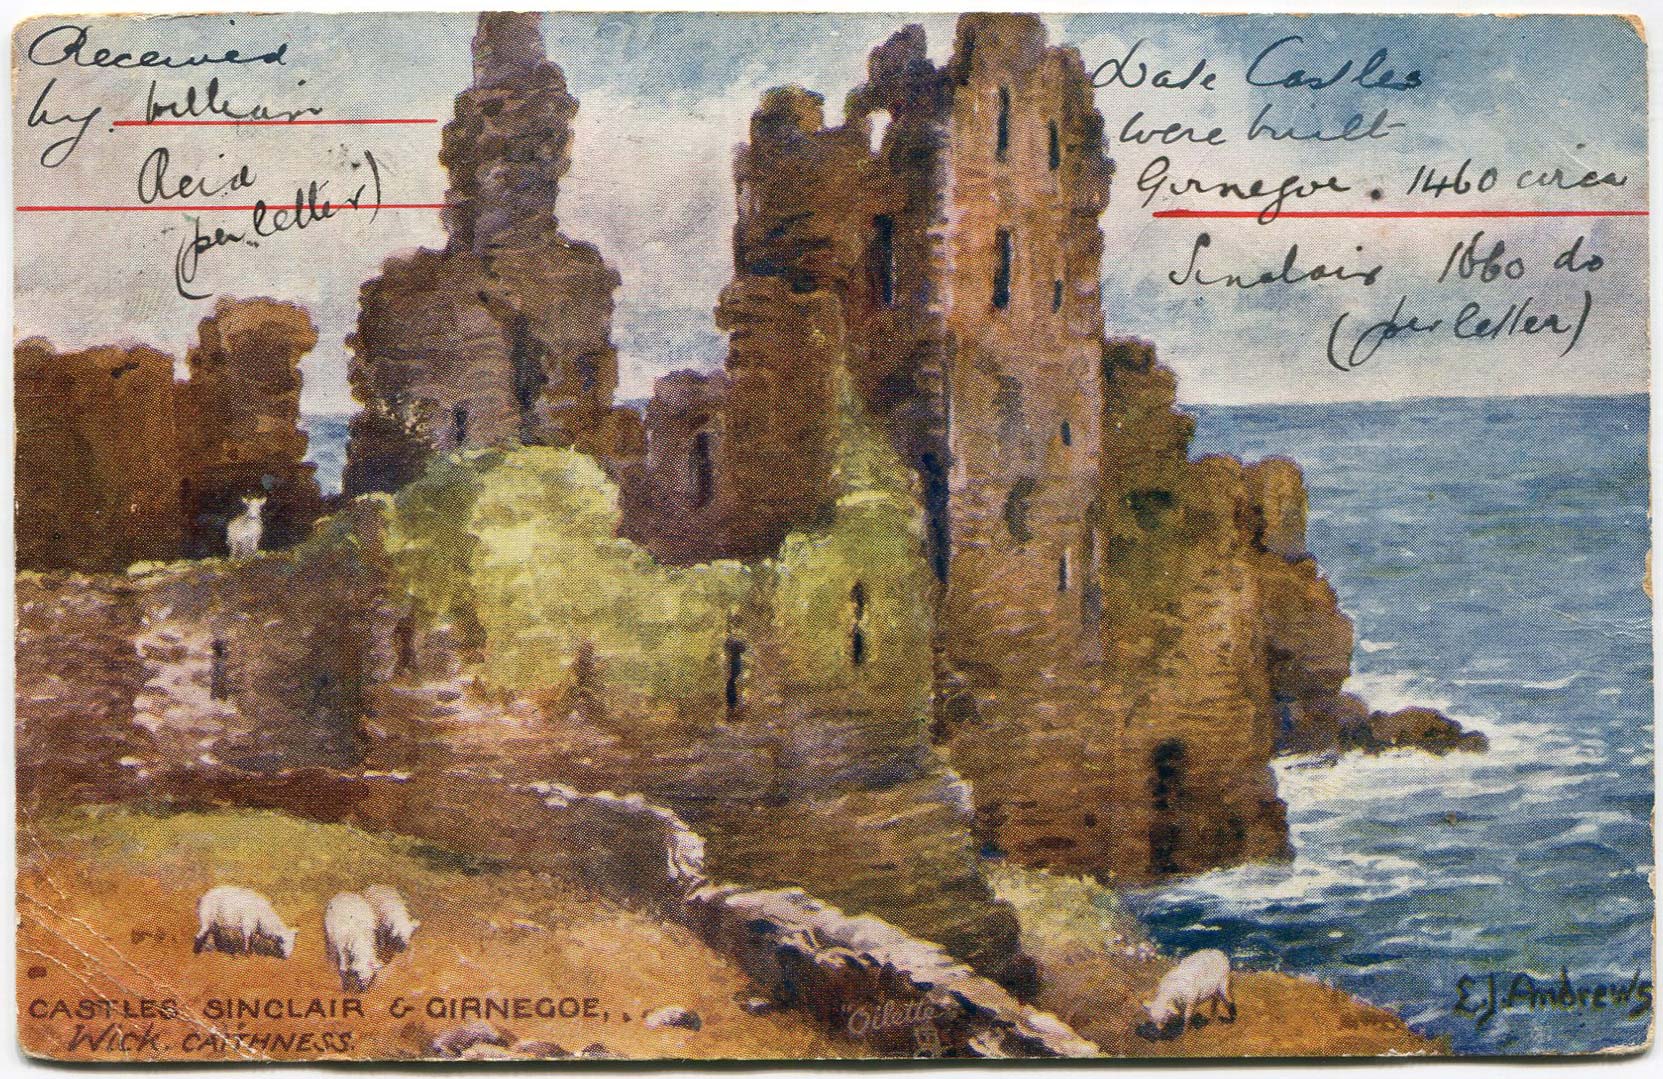 Received
by. William
Reid
(per letter)
Date Castles
were built
Girnegoe. 1460 circa
Sinclair 1660 do
(per letter)
CASTLES SINCLAIR & GIRNEGOE,
Wick. CAITHNESS.
"Oilette"
E.J. Andrews